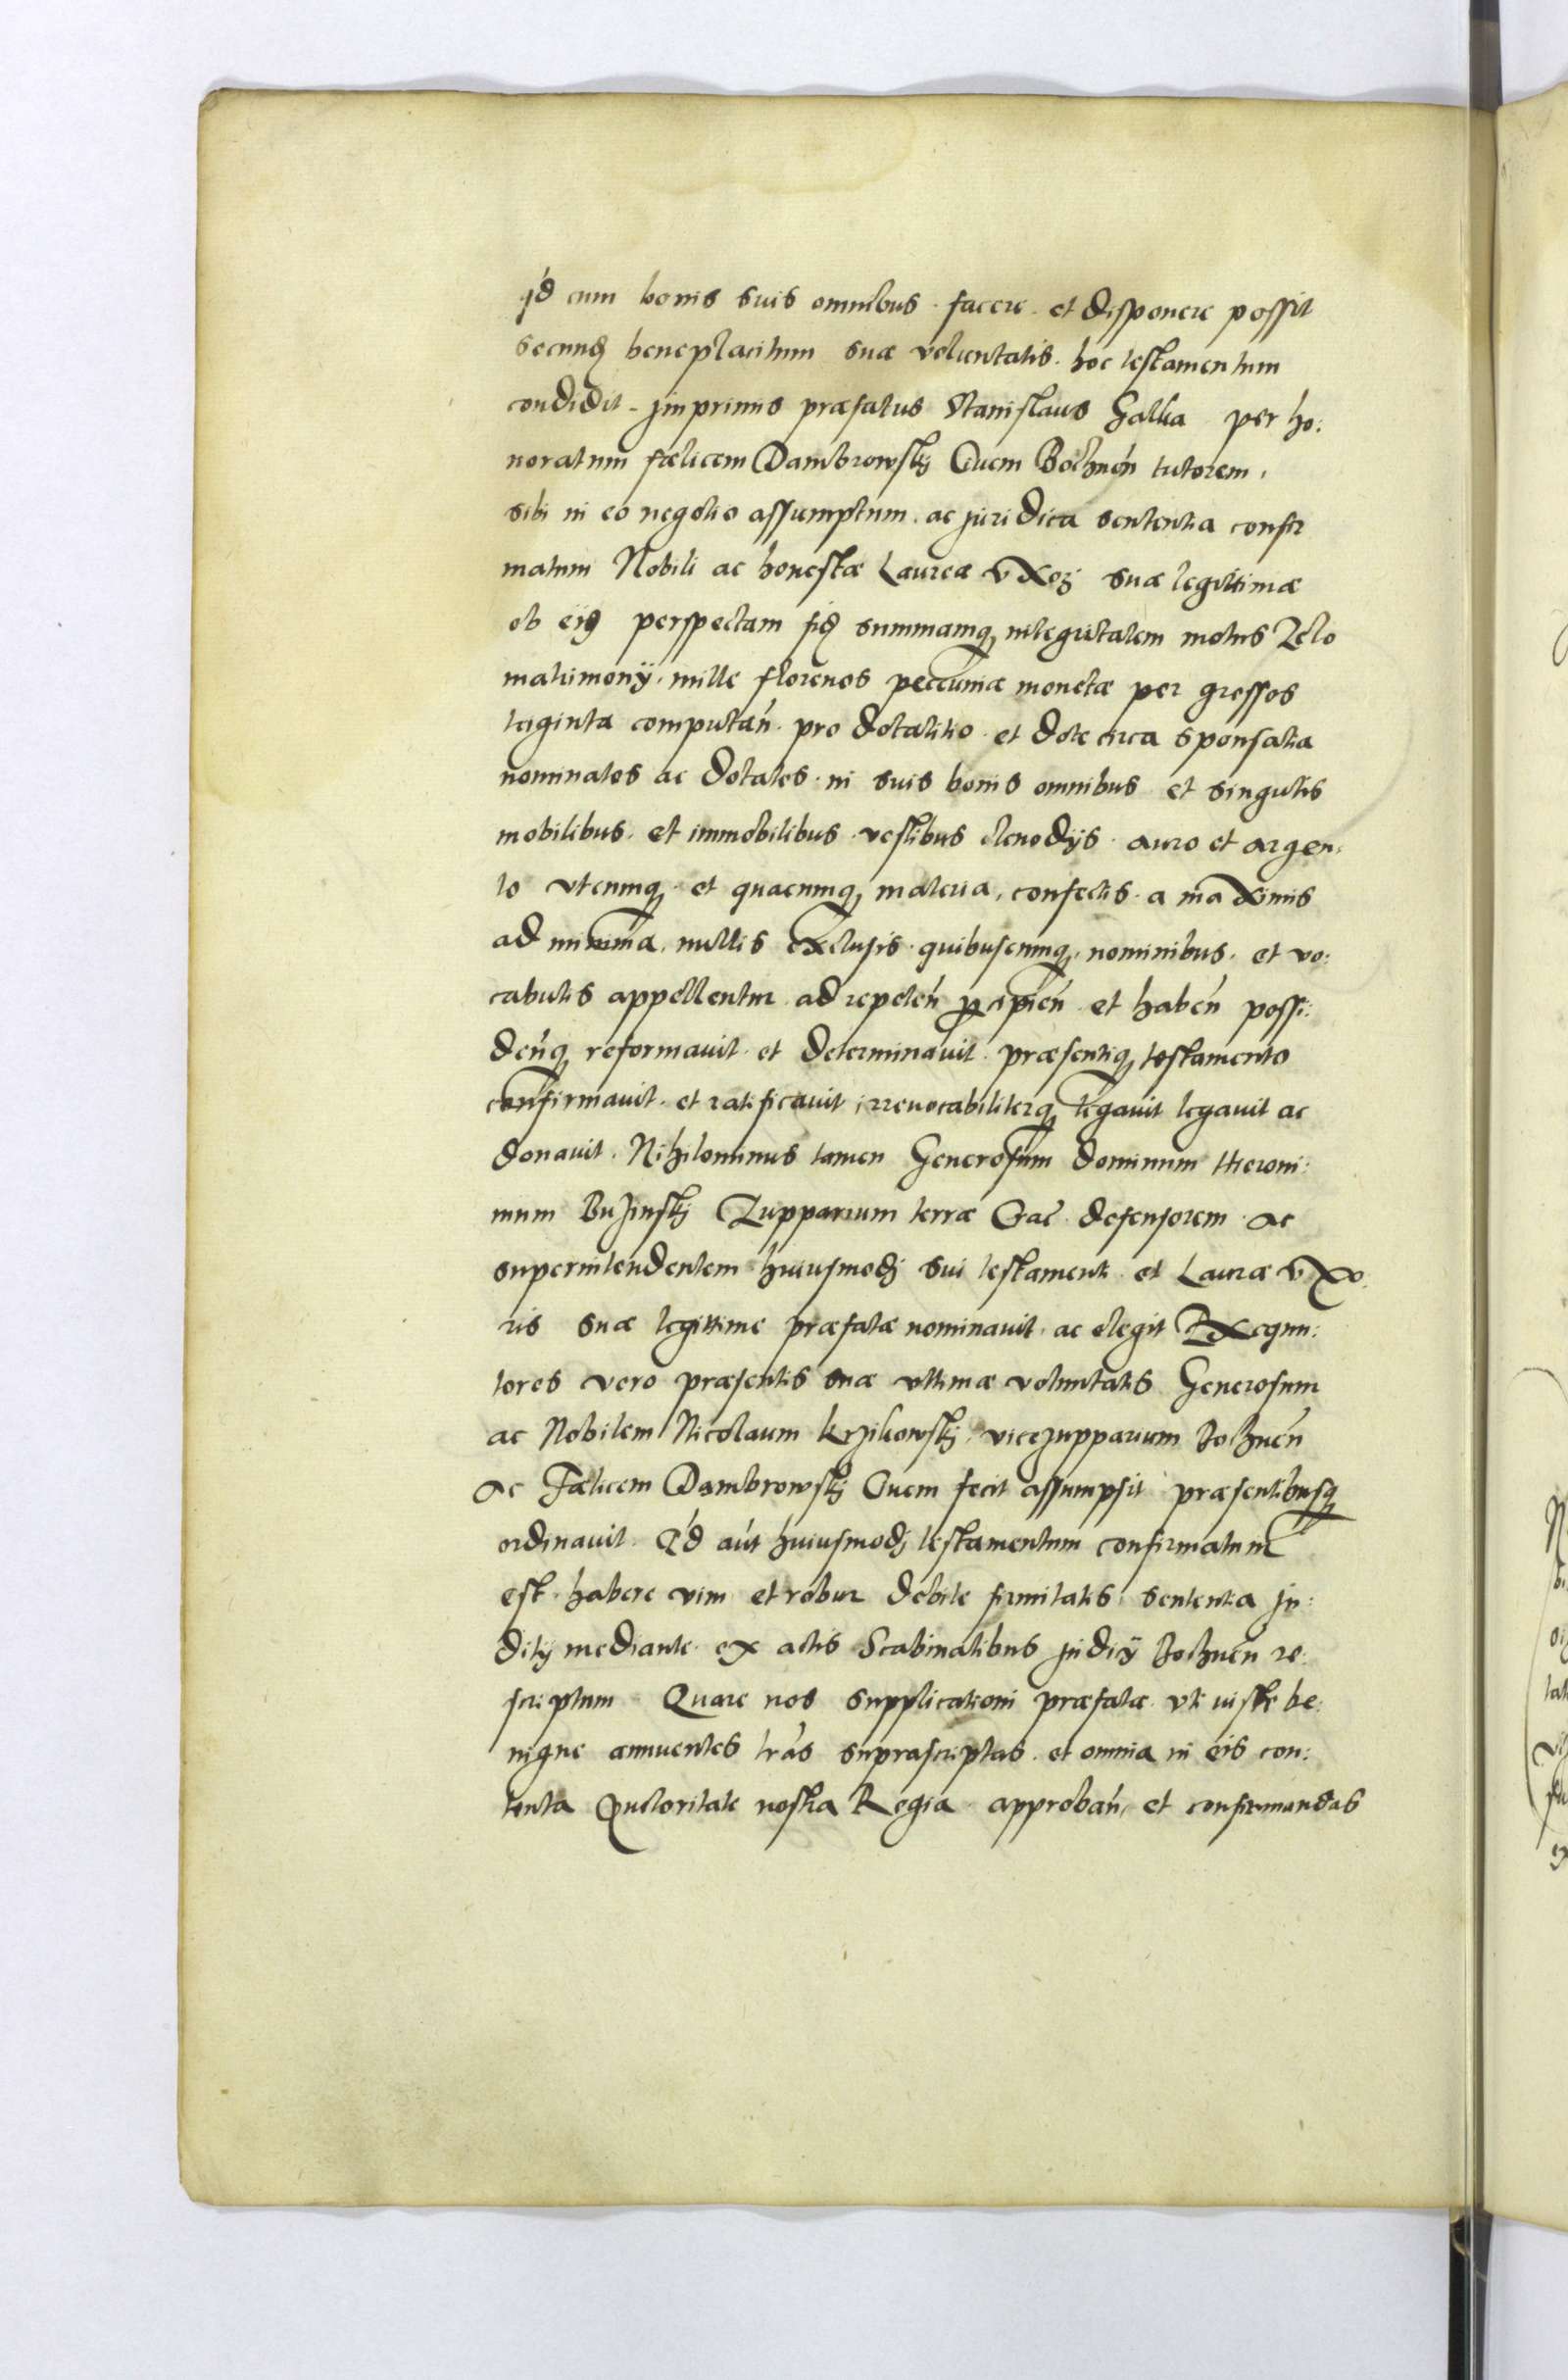 qd cum bonis suis omnibus facere et disponere possit
secund beneplacitum suæ voluntatis. hoc testamentum
condidit - Jmprimis præfatus Stanislaus Galka per ho:
noratum fœlicem Dambrowskj Civem Bochneń tutorem,
sibi in eo negotio assumptum. ac juridica sententia confir
matum Nobili ac honestæ Laureæ vxorj suæ legittimæ
ob eiq perspectam fid summamq integritatem motus Zelo
matrimonÿ. mille florenos peccuniæ monetæ per grossos
triginta computań. pro dotalitio et dote circa sponsalia
nominatos ac dotales. in suis bonis omnibus et singulis
mobilibus. et immobilibus vestibus clenodÿs. auro et argen,
to vtcumq et quacumq materia, confectis. a maximis
ad minima, nullis exclusis quibuscumq, nominibus. et vo:
cabulis appellentur ad repeteń percipień et habeń possi:
deńq reformauit et determinauit. præsentiq testamento
confirmauit. et ratificauit irreuocabiliterq legauit legauit ac
donauit. Nihilominus tamen Generosum dominum Hieroni:
mum Buzinskj Zupparium terræ Crac defensorem ac
superintendentem huiusmodj sui testamenti et Lauræ vxo,
ris suæ legittime præfatæ nominauit. ac elegit Exequu:
tores vero præsentis suæ vltimæ voluntatis Generosum
ac Nobilem Nicolaum krzikowskj. vicezupparium Bochneń
ac Fælicem Dambrowskj Civem fecit assumpsit præsentibusq
ordinauit. Qd aut huiusmodj testamentum confirmatum
est habere vim et robur debite firmitatis sententia Ju:
ditÿ mediante ex actis Scabinalibus Judicÿ Bochneń re:
scriptum Quare nos supplicationi præfatæ vti iuste be:
nigne annuentes tras suprascriptas. et omnia in eis con:
tenta Auctoritate nostra Regia approbań, et confirmandas